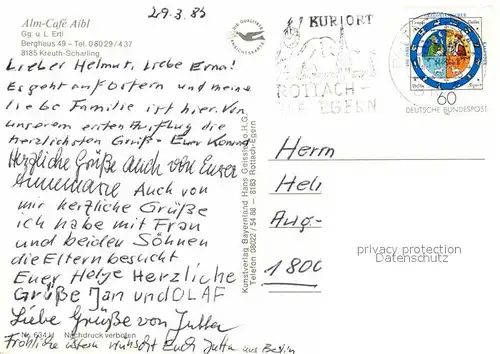 29.3.83
Alm-Café Aibl
Gg. u. L. Ertl
Berghaus 49 - Tel. 08029/437
8185 Kreuth-Scharling
Lieber Helmut, Liebe Erna!
Es geht auf Ostern und meine
liebe Familie ist hier. Von
unserem ersten Ausflug die
herzlichsten Grüße - Euer Konrad
Herzliche Grüße auch von Eurer
Annemarie Auch von
mir herzliche Grüße
ich habe mit Frau
und beiden Söhnen
die Eltern besucht
Euer Helge Herzliche
Grüße Jan und OLAF
Liebe Grüße von Jutta
Nr. 634 H Nachdruck verboten
Fröhliche Ostern wünscht Euch Jutta aus Berlin
Kunstverlag Bayernland Hans Geissler o.H.G.
Telefon 08022 / 54 88 — 8183 Rottach-Egern
DIE QUALITÄTS
ANSICHTSKARTE
KURORT
ROTTACH-
EGERN
60
DEUTSCHE BUNDESPOST
Herrn
Heli
Aug-
1800
privacy protection
Datenschutz